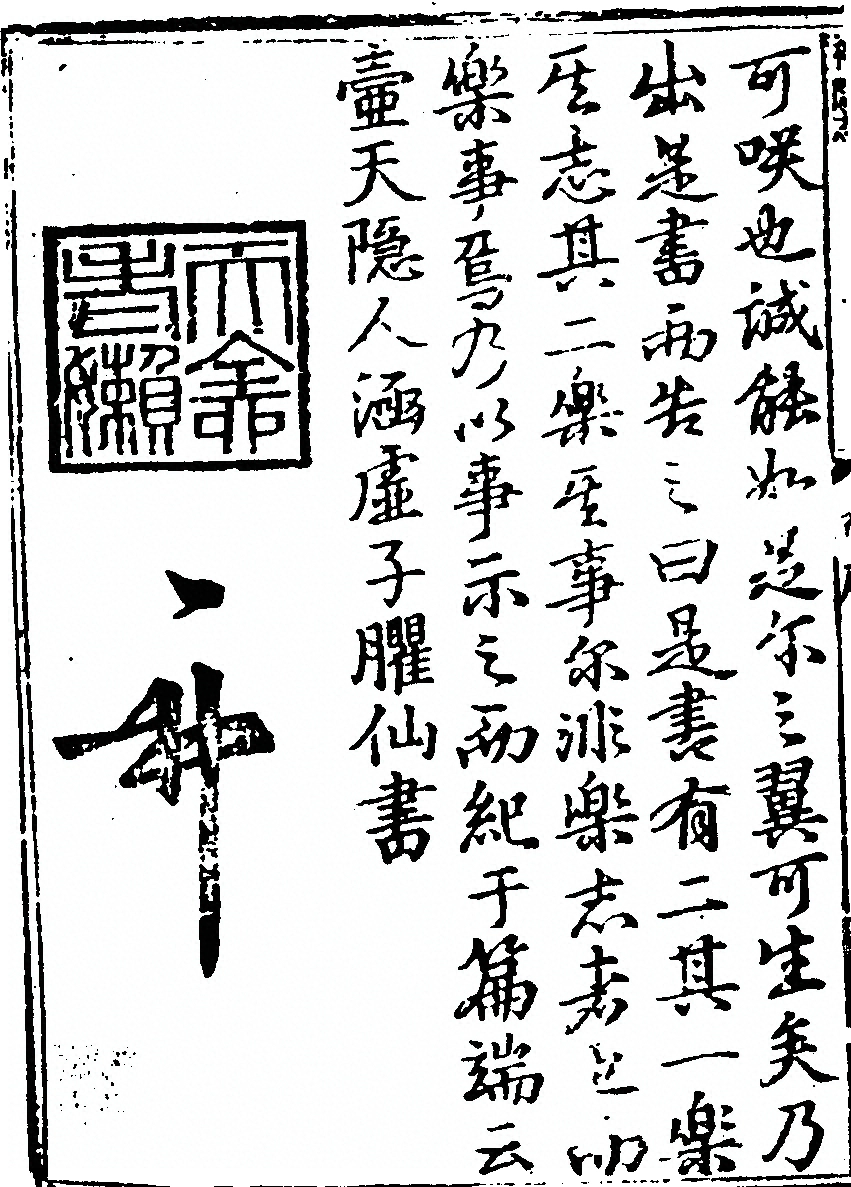 可咲也誠能如是尔之翼可生矣乃
出是書而告之曰是書有二其一樂
其志其二樂其事尔非樂志者
樂事焉乃以事示之而紀于篇端云
壺天隱人涵虛子臞仙書